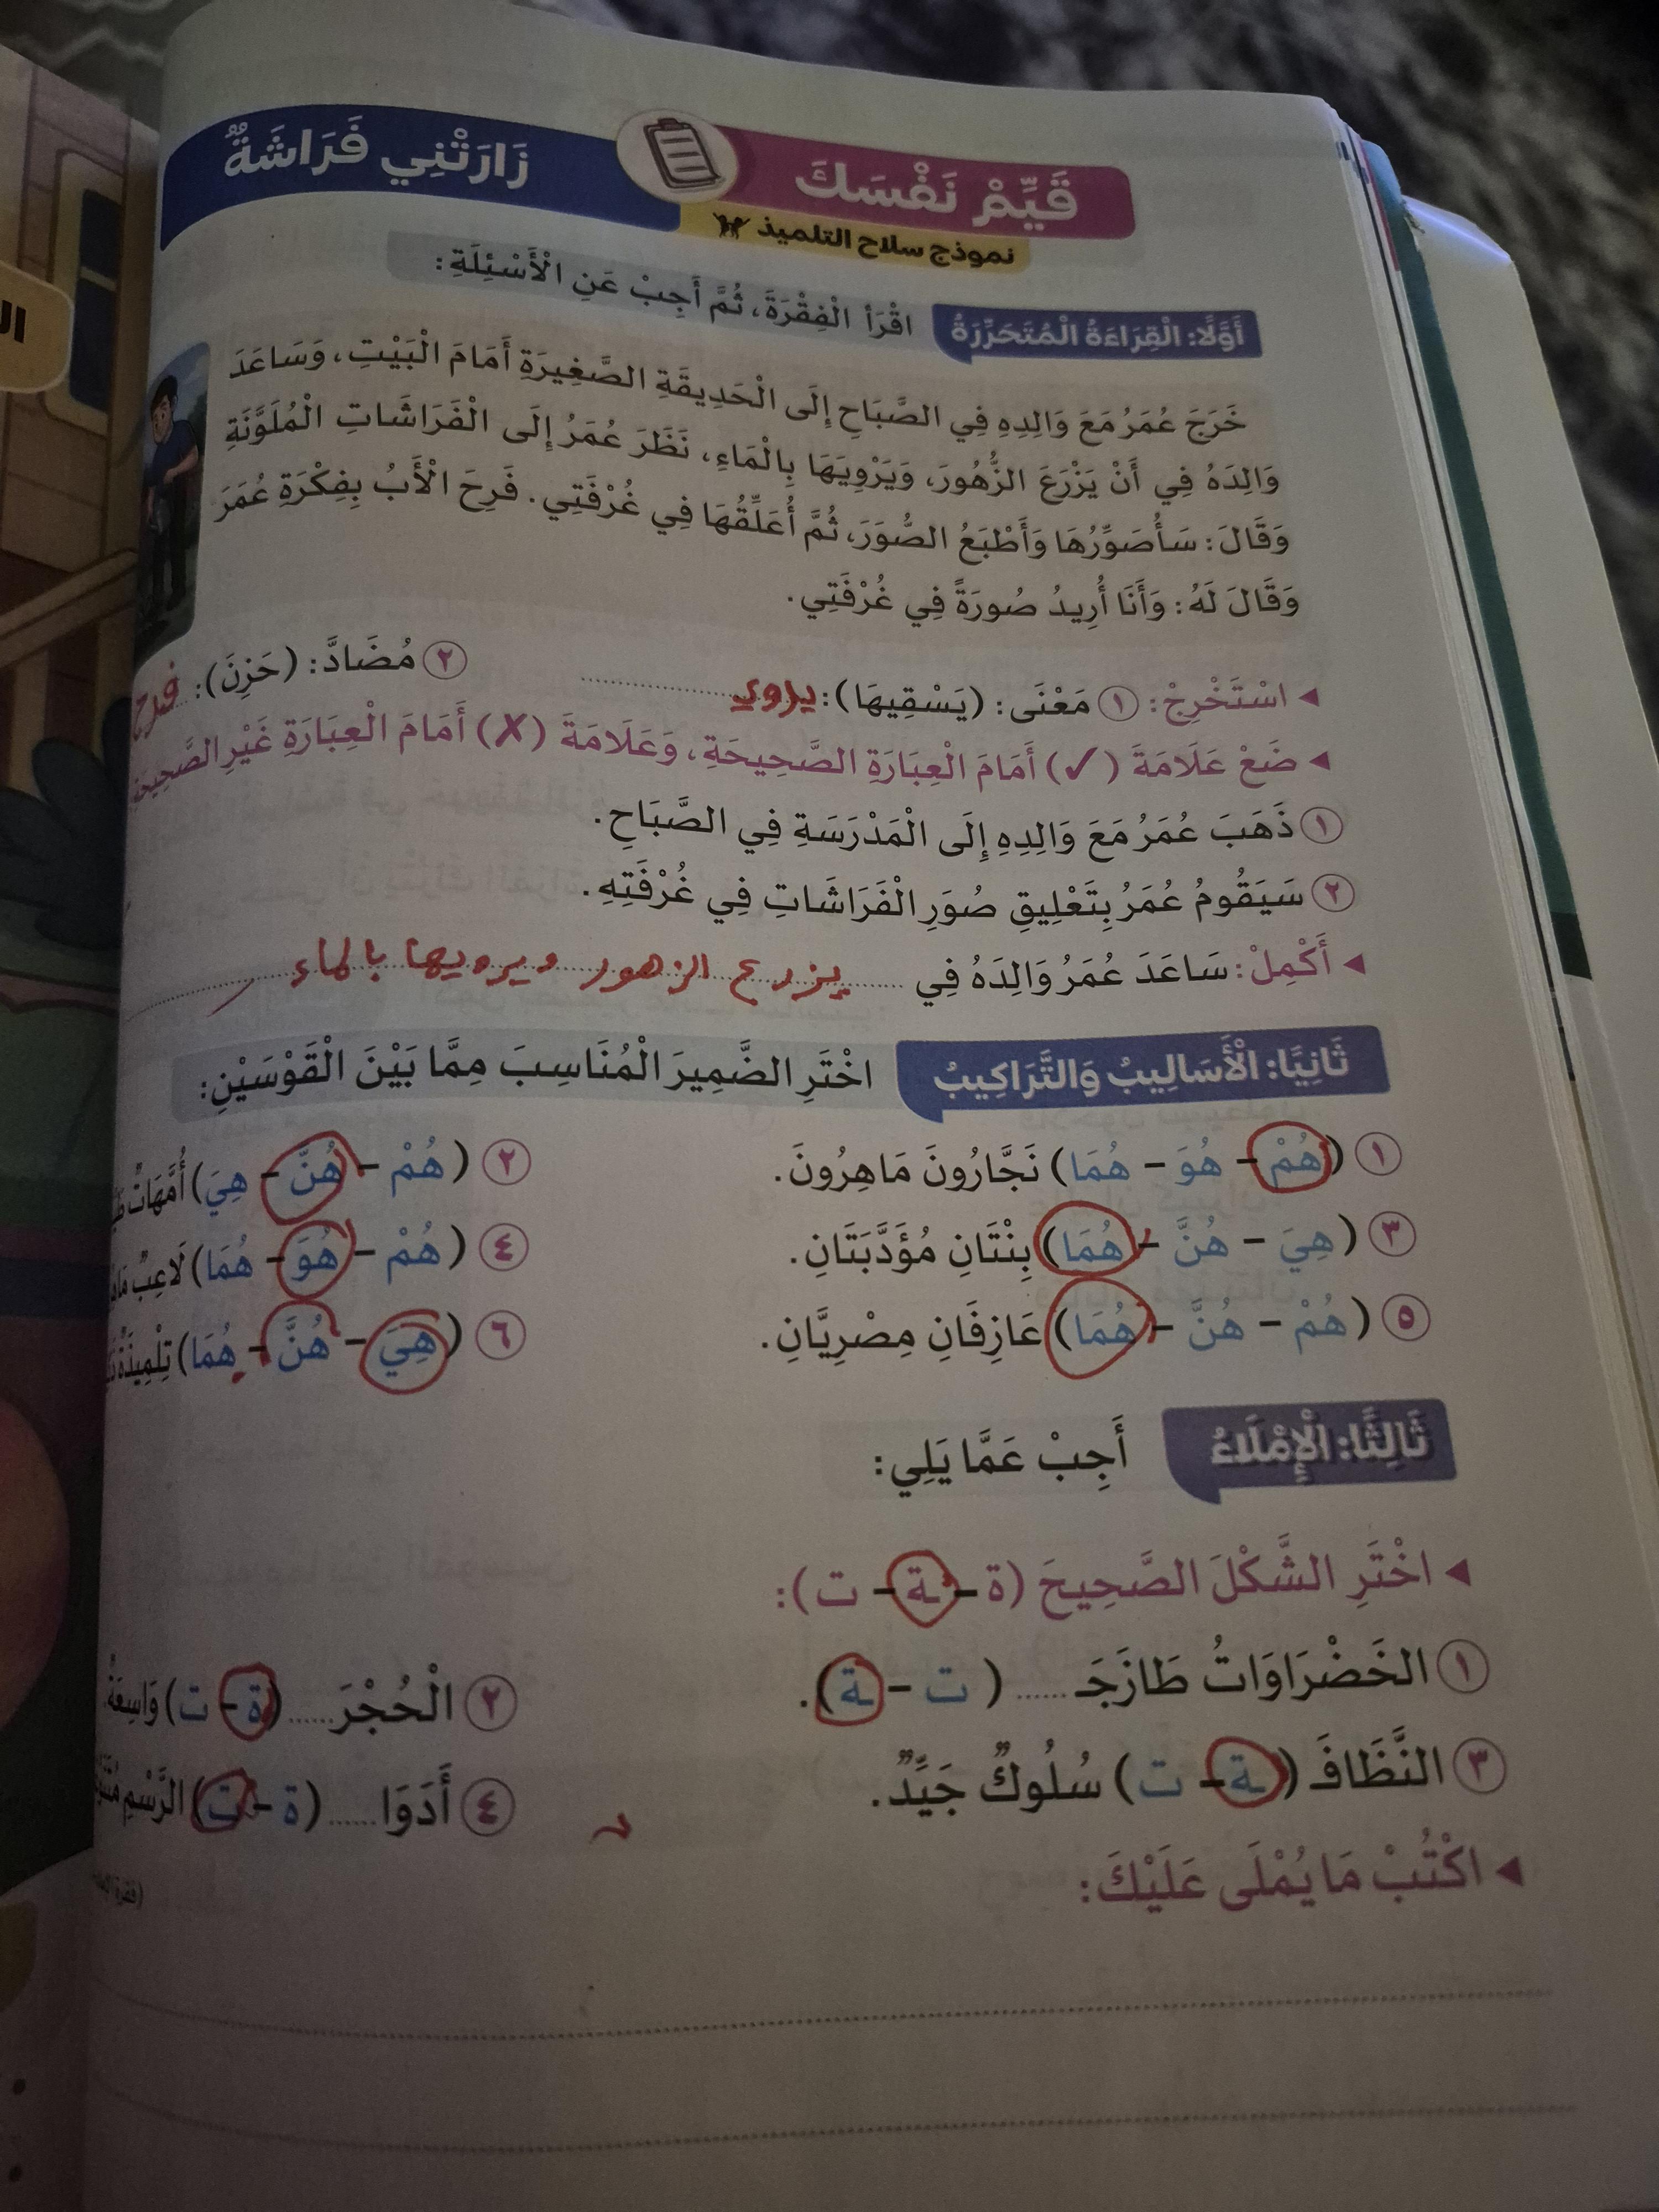 قَيِّمْ نَفْسَكَ
زَارَتْنِي فَرَاشَةٌ
نموذج سلاح التلميذ
أَوَّلًا: الْقِرَاءَةُ الْمُتَحَرِّرَةُ اقْرَأِ الْفِقْرَةَ، ثُمَّ أَجِبْ عَنِ الْأَسْئِلَةِ:
خَرَجَ عُمَرُ مَعَ وَالِدِهِ فِي الصَّبَاحِ إِلَى الْحَدِيقَةِ الصَّغِيرَةِ أَمَامَ الْبَيْتِ، وَسَاعَدَ
وَالِدَهُ فِي أَنْ يَزْرَعَ الزُّهُورَ، وَيَرْوِيَهَا بِالْمَاءِ، نَظَرَ عُمَرُ إِلَى الْفَرَاشَاتِ الْمُلَوَّنَةِ
وَقَالَ: سَأُصَوِّرُهَا وَأَطْبَعُ الصُّوَرَ، ثُمَّ أُعَلِّقُهَا فِي غُرْفَتِي. فَرِحَ الْأَبُ بِفِكْرَةِ عُمَرَ
وَقَالَ لَهُ: وَأَنَا أُرِيدُ صُورَةً فِي غُرْفَتِي.
◄ اسْتَخْرِجْ: ١ مَعْنَى: (يَسْقِيهَا): يروي ٢ مُضَادَّ: (حَزِنَ): فرح
◄ ضَعْ عَلَامَةَ (✓) أَمَامَ الْعِبَارَةِ الصَّحِيحَةِ، وَعَلَامَةَ (✗) أَمَامَ الْعِبَارَةِ غَيْرِ الصَّحِيحَةِ
١ ذَهَبَ عُمَرُ مَعَ وَالِدِهِ إِلَى الْمَدْرَسَةِ فِي الصَّبَاحِ.
٢ سَيَقُومُ عُمَرُ بِتَعْلِيقِ صُوَرِ الْفَرَاشَاتِ فِي غُرْفَتِهِ.
◄ أَكْمِلْ: سَاعَدَ عُمَرُ وَالِدَهُ فِي يزرع الزهور ويرويها بالماء
ثَانِيًا: الْأَسَالِيبُ وَالتَّرَاكِيبُ اخْتَرِ الضَّمِيرَ الْمُنَاسِبَ مِمَّا بَيْنَ الْقَوْسَيْنِ:
١ (هُمْ – هُوَ – هُمَا) نَجَّارُونَ مَاهِرُونَ. ٢ (هُمْ – هُنَّ – هِيَ) أُمَّهَاتٌ
٣ (هِيَ – هُنَّ – هُمَا) بِنْتَانِ مُؤَدَّبَتَانِ. ٤ (هُمْ – هُوَ – هُمَا) لَاعِبٌ
٥ (هُمْ – هُنَّ – هُمَا) عَازِفَانِ مِصْرِيَّانِ. ٦ (هِيَ – هُنَّ – هُمَا) تِلْمِيذَةٌ
ثَالِثًا: الْإِمْلَاءُ أَجِبْ عَمَّا يَلِي:
◄ اخْتَرِ الشَّكْلَ الصَّحِيحَ (ة – ـة – ت):
١ الخَضْرَاوَاتُ طَازَجَـ ...... ( ت – ـة). ٢ الْحُجْرَ...... (ة – ت) وَاسِعَةٌ.
٣ النَّظَافَـ (ـة – ت) سُلُوكٌ جَيِّدٌ. ٤ أَدَوَا...... (ة – ت) الرَّسْمِ
◄ اكْتُبْ مَا يُمْلَى عَلَيْكَ: